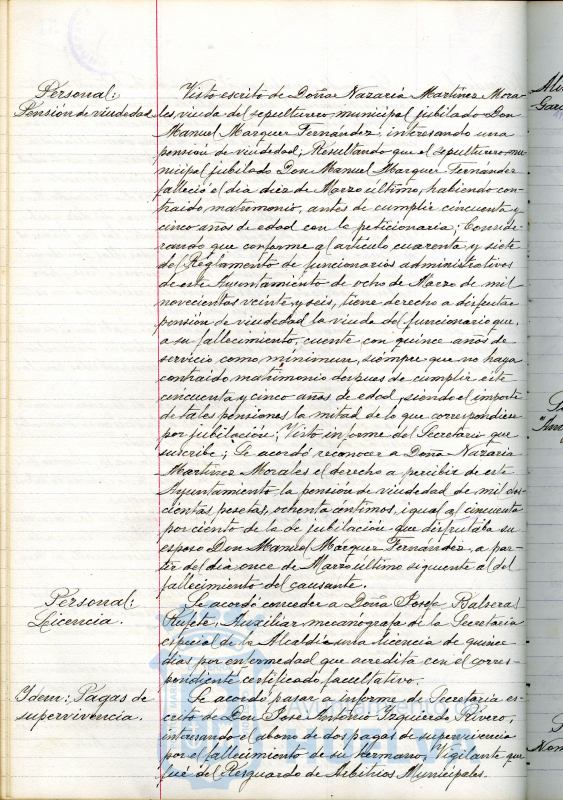 Personal:
Pensión de viudedad
Visto escrito de Doña Nazaria Martínez Mora-
les, viuda del sepulturero municipal jubilado Don
Manuel Marquez Fernández, interesando una
pensión de viudedad; Resultando que el sepulturero mu-
nicipal jubilado Don Manuel Marquez Fernández
falleció el día diez de Marzo último, habiendo con-
traido matrimonio, antes de cumplir cincuenta y
cinco años de edad con la peticionaria; Conside-
rando que conforme al artículo cuarenta y siete
del Reglamento de funcionarios administrativos
de este Ayuntamiento de ocho de Marzo de mil
novecientos veinte y seis, tiene derecho a disfrutar
pensión de viudedad la viuda del funcionario que,
a su fallecimiento, cuente con quince años de
servicio como mínimum, siempre que no haya
contraido matrimonio despues de cumplir este
cincuenta y cinco años de edad, siendo el importe
de tales pensiones la mitad de lo que correspondiera
por jubilación; Visto informe del Secretario que
suscribe; Se acordó reconocer a Doña Nazaria
Martínez Morales el derecho a percibir de este
Ayuntamiento la pensión de viudedad de mil dos-
cientas pesetas, ochenta céntimos, igual al cincuenta
por ciento de la de jubilación que disfrutaba su
esposo Don Manuel Márquez Fernández, a par-
tir del día once de Marzo último siguiente al del
fallecimiento del causante.
Personal:
Licencia.
Se acordó conceder a Doña Josefa Balsera
Rufete, Auxiliar mecanografa de la Secretaria
especial de la Alcaldía una licencia de quince
días por enfermedad que acredita con el corres-
pondiente certificado facultativo.
Idem: Pagas de
supervivencia.
Se acordó pasar a informe de Secretaria es-
crito de Don José Antonio Izquierdo Rivero,
interesando el abono de dos pagas de supervivencia
por el fallecimiento de su hermano, Vigilante que
fué del Resguardo de Arbitrios Municipales.